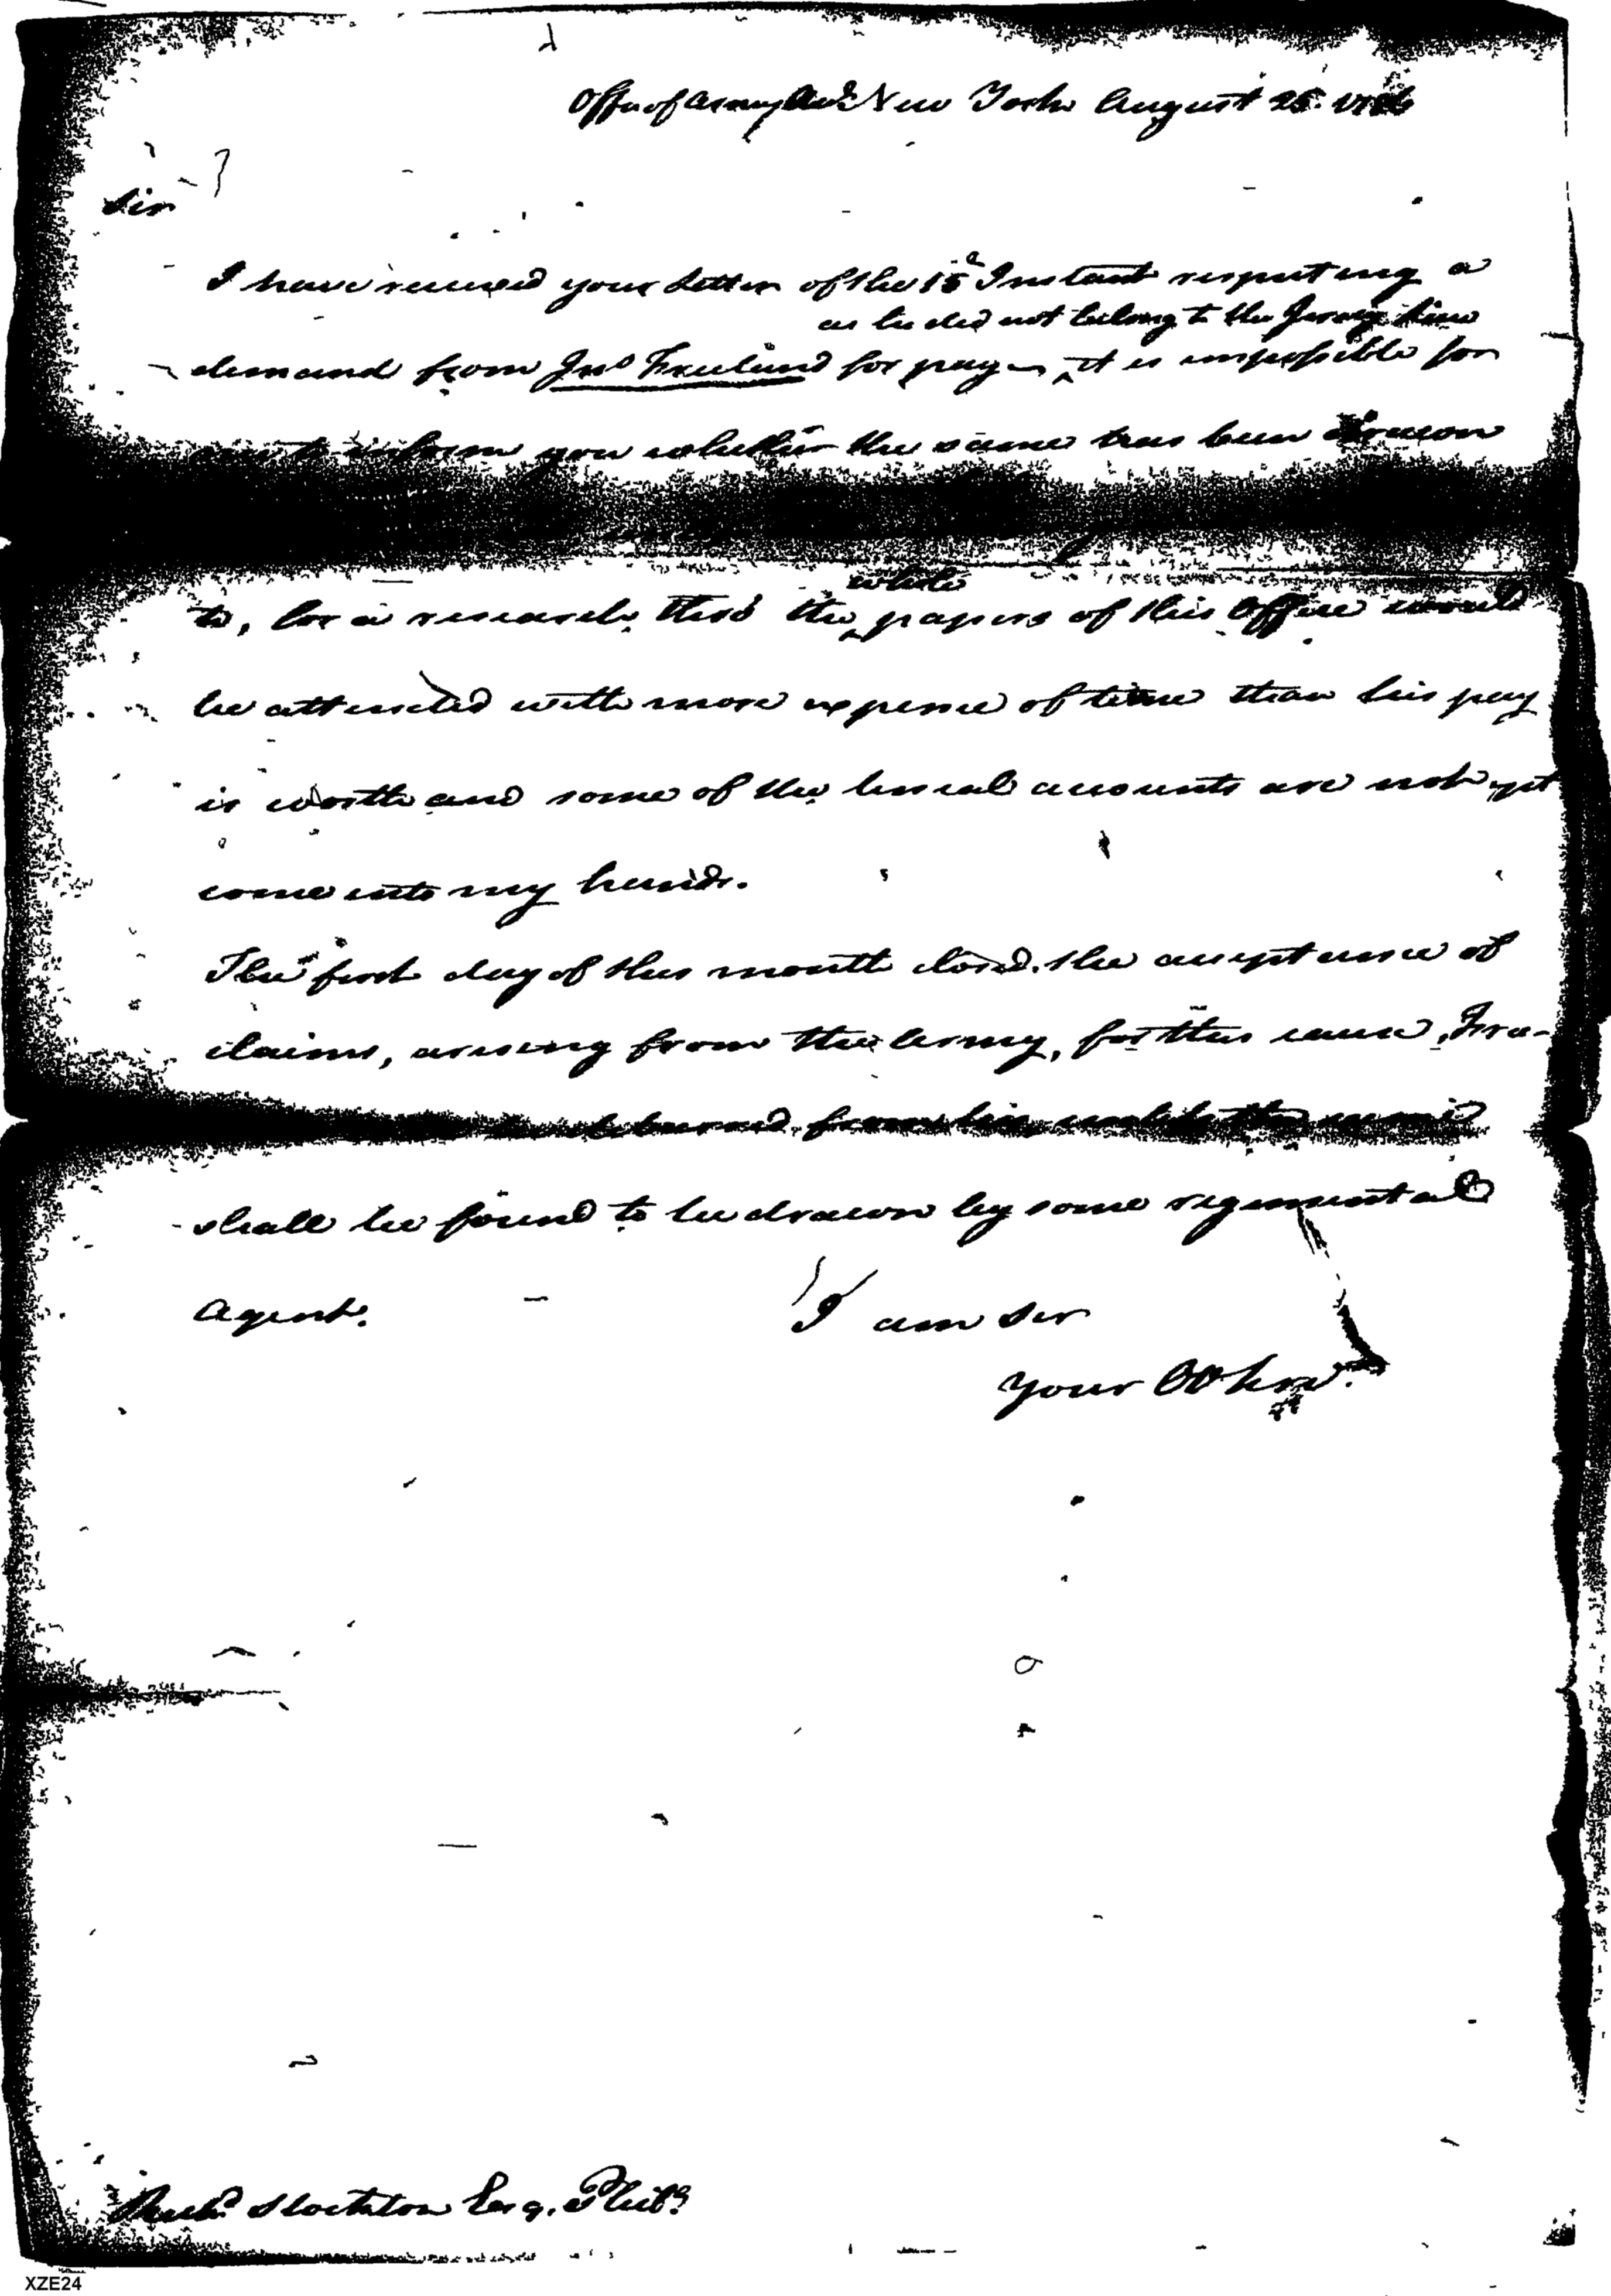 Office of Army Accts New York August 25. 1786
Sir
I have received your Letter of the 15th Instant respecting a
as he did not belong to the Jersey line
demand from Jno Freeland for pay it is impossible for
me to inform you whether the same has been drawn
whole
to, for a research thro' the papers of this Office would
be attended with more expence of time than his pay
is worth and some of the accounts are not yet
come into my hands.
The first day of this month closed the acceptance of
claims, arising from the Army, for this cause, Free-
debarred from his, unless the
shall be found to be drawn by some regimental
Agent.
I am Sir
your
Richd Stockton Esq.
XZE24